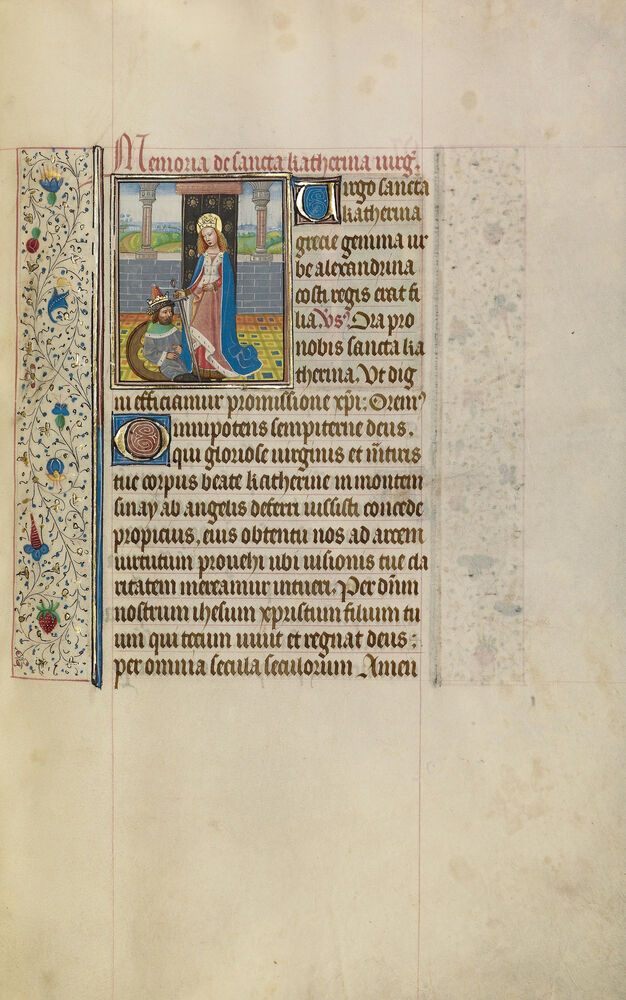 Memoria de sancta katherina uirgͥ.
Uirgo sancta
katherina
grecie gemma ur
be alexandrina
costi regis erat fi
lia. Vsꝰ. Ora pro
nobis sancta ka
therina. Vt dig
ni efficiamur promissione xp̄i: Oremꝰ
Omnipotens sempiterne deus.
qui gloriose uirginis et m̄tiris
tue corpus beate katherine in montem
sinay ab angelis deferri iussisti concede
propicius, eius obtentu nos ad arcem
uirtutum prouehi ubi uisionis tue cla
ritatem mereamur intueri. Per dn̄m
nostrum ihesum xpristum filium tu
um qui tecum uiuit et regnat deus:
per omnia secula seculorum Amen